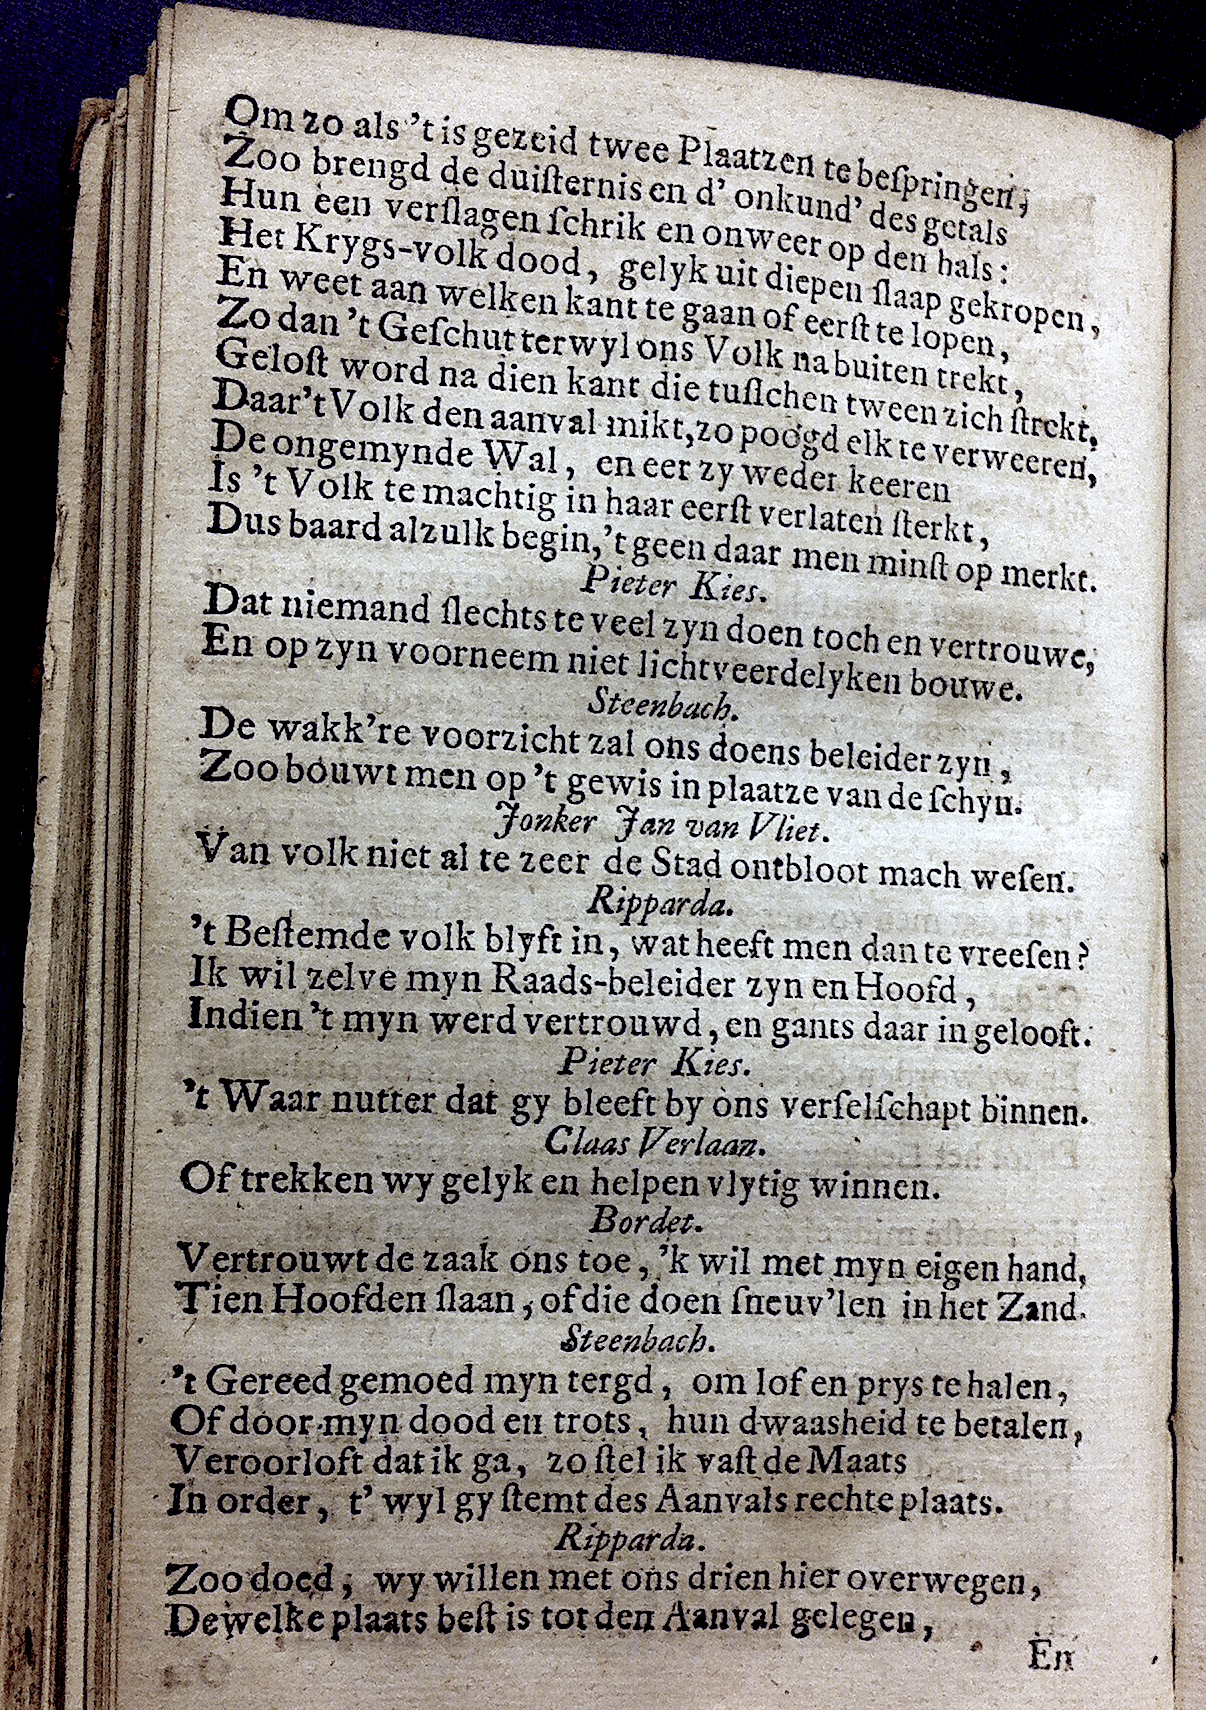 Om zo als 't is gezeid twee Plaatzen te beſpringen,
Zoo brengd de duiſternis en d' onkund' des getals
Hun een verſlagen ſchrik en onweer op den hals:
Het Krygs-volk dood, gelyk uit diepen ſlaap gekropen,
En weet aan welken kant te gaan of eerſt te lopen,
Zo dan 't Geſchut terwyl ons Volk na buiten trekt,
Geloſt word na dien kant die tuſſchen tween zich ſtrekt,
Daar 't Volk den aanval mikt, zo poogd elk te verweeren,
De ongemynde Wal, en eer zy weder keeren
Is 't Volk te machtig in haar eerſt verlaten ſterkt,
Dus baard alzulk begin, 't geen daar men minſt op merkt.
Pieter Kies.
Dat niemand ſlechts te veel zyn doen toch en vertrouwe,
En op zyn voorneem niet lichtveerdelyken bouwe.
Steenbach.
De wakk're voorzicht zal ons doens beleider zyn,
Zoo bouwt men op 't gewis in plaatze van de ſchyn.
Jonker Jan van Vliet.
Van volk niet al te zeer de Stad ontbloot mach weſen.
Ripparda.
't Beſtemde volk blyft in, wat heeft men dan te vreeſen?
Ik wil zelve myn Raads-beleider zyn en Hoofd,
Indien 't myn werd vertrouwd, en gants daar in gelooft.
Pieter Kies.
't Waar nutter dat gy bleeft by ons verſelſchapt binnen.
Claas Verlaan.
Of trekken wy gelyk en helpen vlytig winnen.
Bordet.
Vertrouwt de zaak ons toe, 'k wil met myn eigen hand,
Tien Hoofden ſlaan, of die doen ſneuv'len in het Zand.
Steenbach.
't Gereed gemoed myn tergd, om lof en prys te halen,
Of door myn dood en trots, hun dwaasheid te betalen,
Veroorloft dat ik ga, zo ſtel ik vaſt de Maats
In order, t' wyl gy ſtemt des Aanvals rechte plaats.
Ripparda.
Zoo doed, wy willen met ons drien hier overwegen,
Dewelke plaats beſt is tot den Aanval gelegen,
En